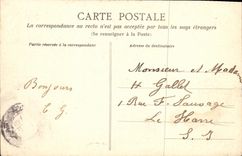 CARTE POSTALE
La correspondance au recto n'est pas acceptée par tous les pays étrangers
(Se renseigner à la Poste)
Partie réservée à la correspondance
Adresse du destinataire
Monsieur et Madame
H Gallet
1 Rue F. Sauvage
Le Havre
S. I
Bonjours
E G